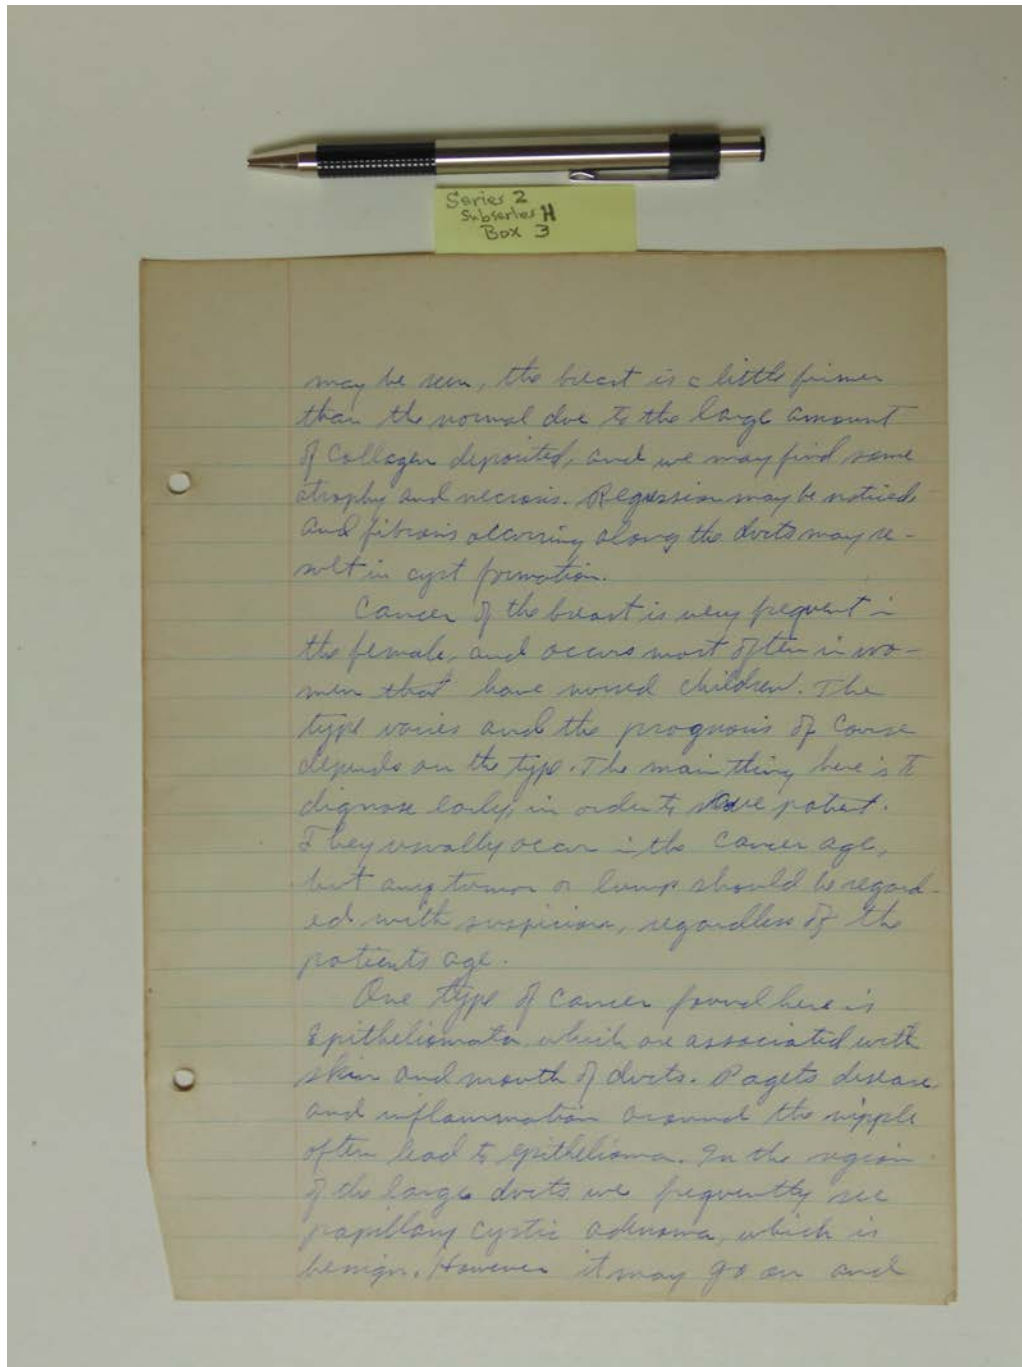 Series 2
Subseries H
Box 3
may be seen, the breast is a little firmer
than the normal due to the large amount
of collagen deposited, and we may find some
atrophy and necrosis. Regression may be noticed
and fibrosis occurring along the ducts may re-
sult in cyst formation.
Cancer of the breast is very frequent in
the female, and occurs most often in wo-
men that have nursed children. The
type varies and the prognosis of course
depends on the type. The main thing here is to
dignose early, in order to save patient.
They usually occur in the cancer age,
but any tumor or lump should be regard-
ed with suspicion, regardless of the
patients age.
One type of cancer found here is
Epitheliomata, which are associated with
skin and mouth of ducts. Pagets disease
and inflammation around the nipple
often lead to epithelioma. In the region
of the large ducts we frequently see
papillary cystic adenoma, which is
benign. However it may go on and